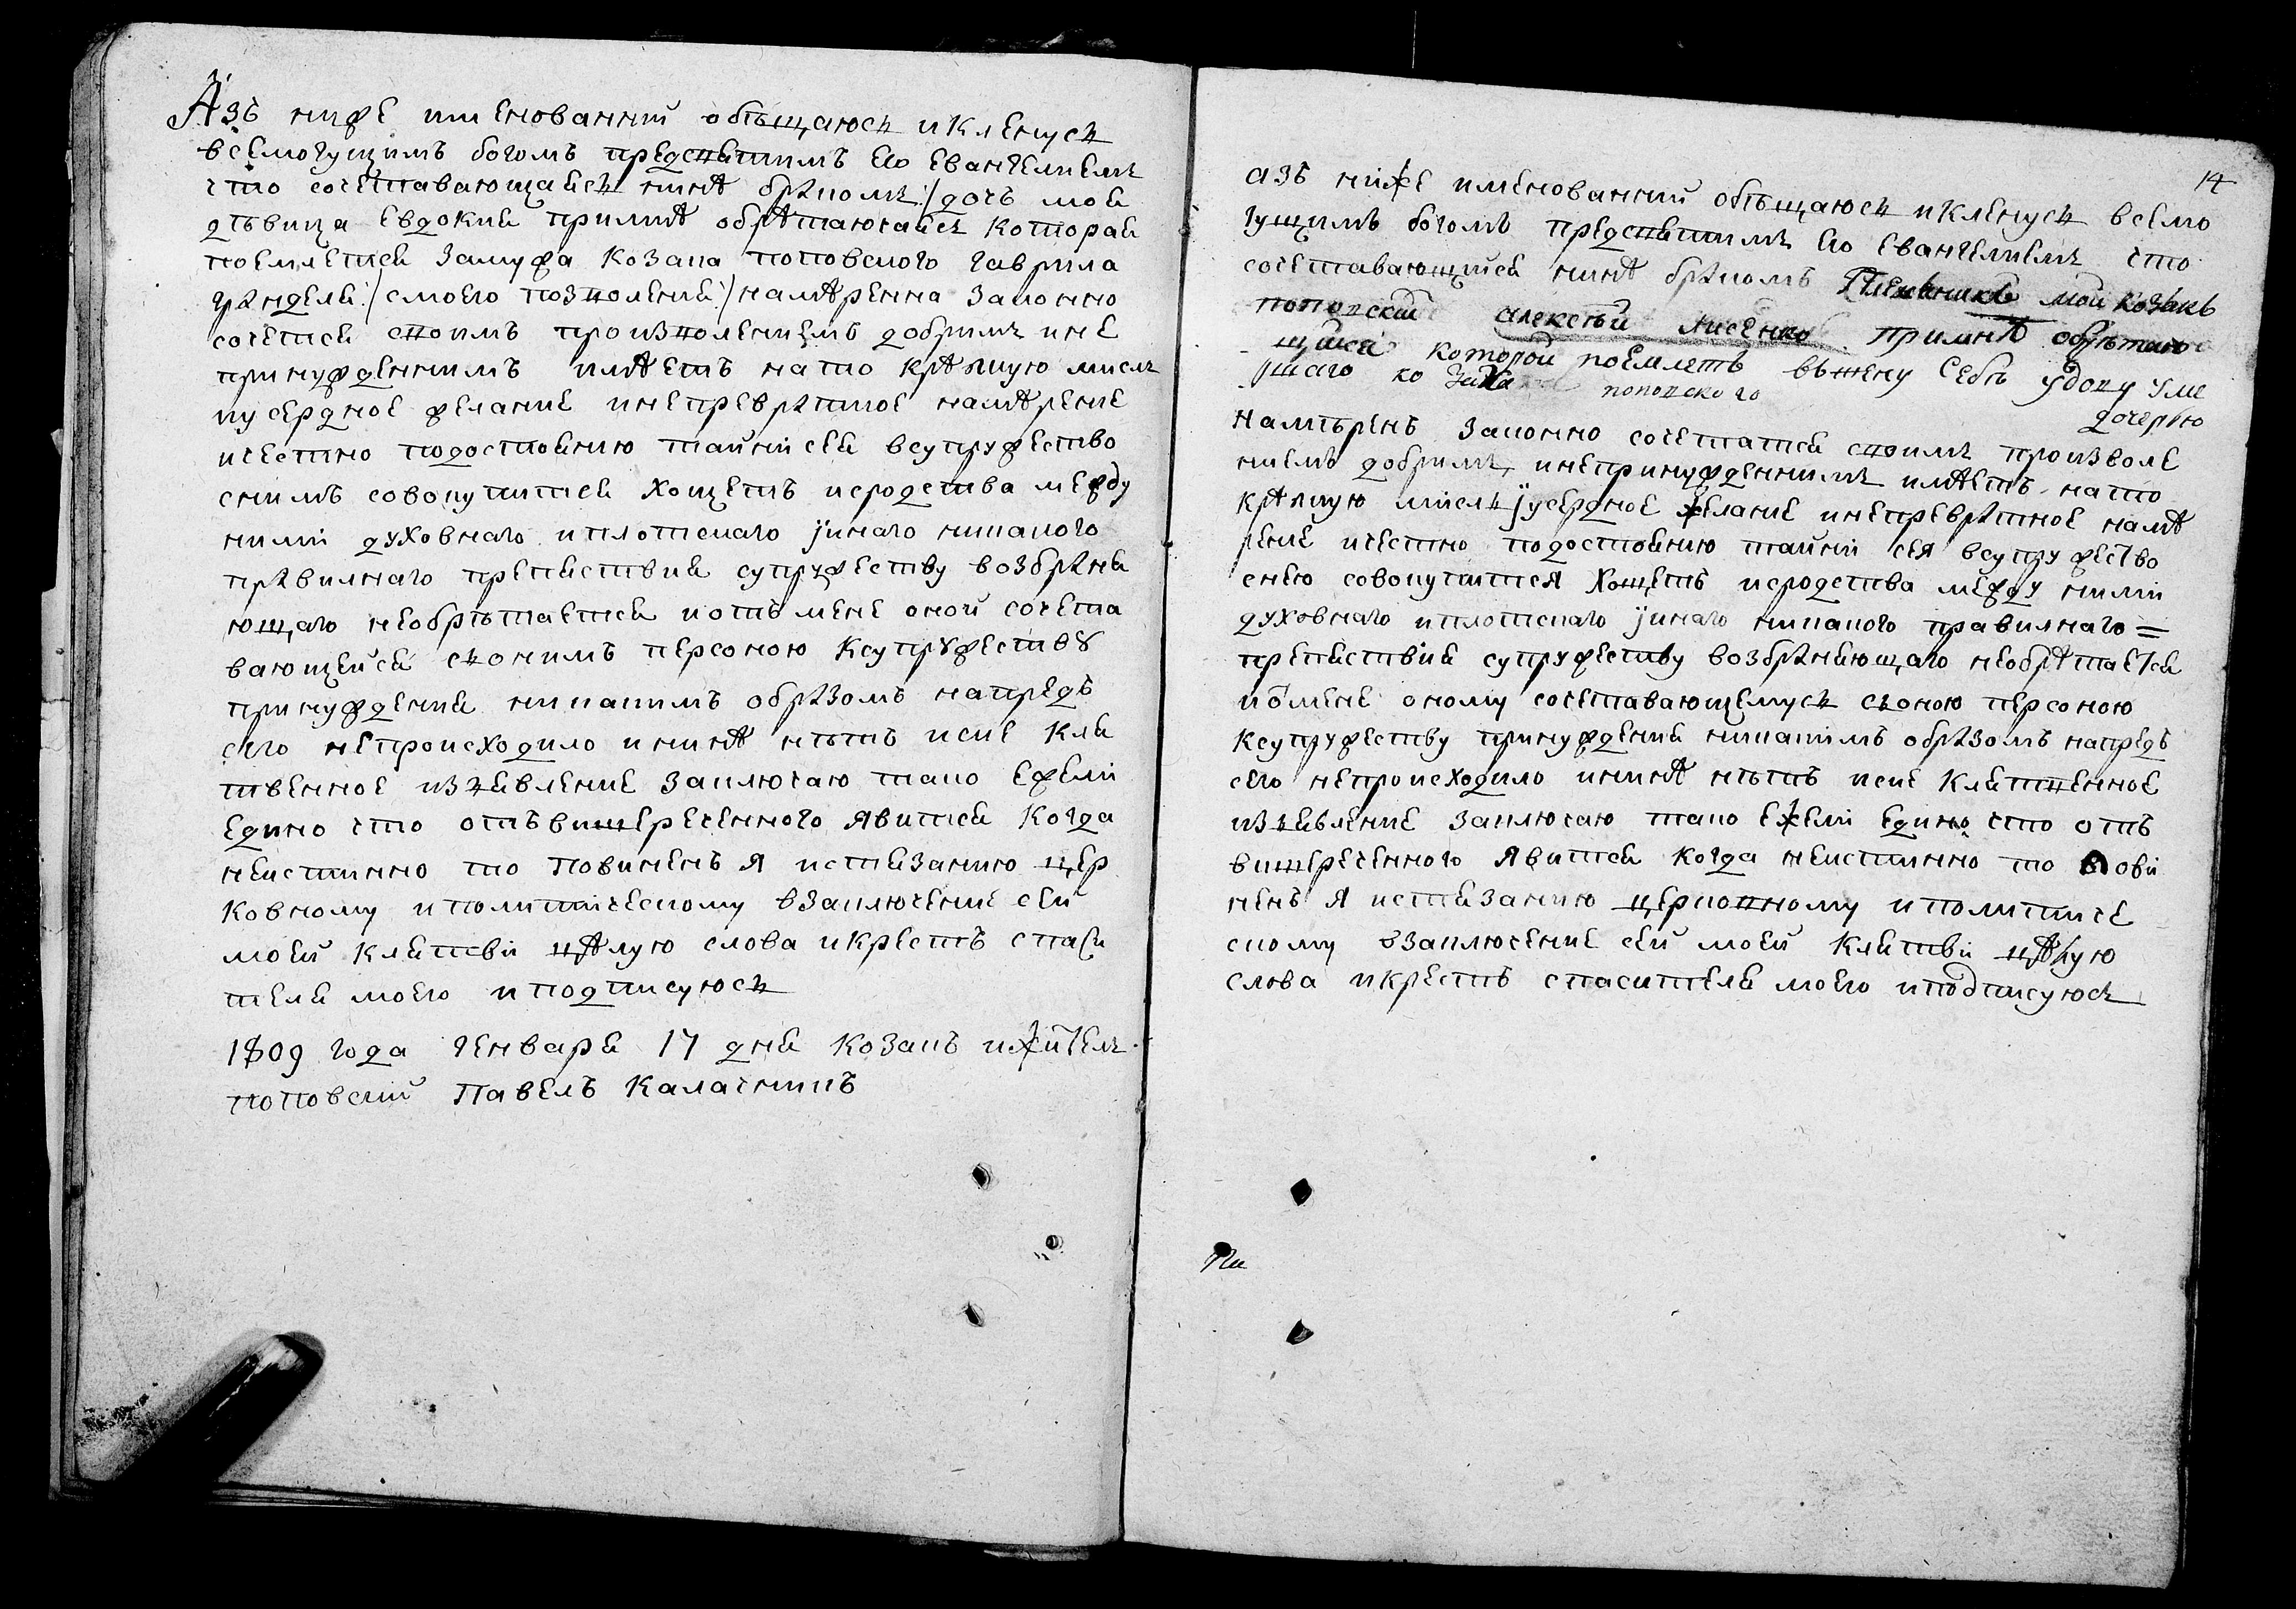 Азъ ниже именованний обѣщаюся и клянуся
всемогущимъ богомъ предсвятимъ его евангелиемъ
что сочетавающаяся нинѣ бракомъ :/ дочь моя
дѣвица Евдокия примнѣ обрѣтаючаясь которая
поемлется замужа козака поповского гаврила
грндея :/ смоего позволения :/ намѣренна законно
сочется своимъ произволениемъ добримъ ине
принужденнимъ имѣетъ нато крѣпкую мисль
иусердное желание инепревратное намѣрение
ичестно подостоянию тайни сея всупружество
снимъ совокупится хощетъ исродства между
ними духовнаго иплотскаго инаго никакого
правилнаго препятствия супружеству возбраня
ющаго необрѣтается иотъ мене оной сочета
вающейся сонимъ персоною ксупружеству
принуждения никакимъ образомъ напредъ
сего непроисходило ининѣ нѣтъ исие кля
твенное изъявление заключаю тако ежели
едино что отъ вишереченного явится когда
неистинно то повиненъ я истязанию цер
ковному иполитическому взаключение сей
моей клятви цѣлую слова икрестъ спаси
теля моего иподписуюся
1809 года генваря 17 дня козакъ ижитель
поповский Павелъ Калачникъ
14
азъ ниже именованний обѣщаюся иклянуся всемо
гущимъ богомъ предсвятимъ его евангелиемъ что
сочетавающийся нинѣ бракомъ Племѣнникъ мой козакъ
поповский алексѣй лисенко примнѣ обрѣтаю
щийся которой поемлетъ вьжену себѣ удову уме
ршаго козака поповского
дочерью
намѣренъ законно сочетатся своимъ произволе
ниемъ добримъ инепринужденнимъ имѣетъ нато
крѣпкую мисль иусердное желание инепревратное намѣ
рение ичестно подостоянию тайни сея всупружество
снею совокупится хощетъ исродства между ними
духовнаго иплотскаго инаго никакого правилнаго =
препятствия супружеству возбраняющаго необрѣтается
иотмене оному сочетавающемуся соною персоною
ксупружеству принуждения никакимъ образомъ напредъ
сего непроисходило ининѣ нѣтъ исие клятвенное
изъявление заключаю тако ежели едино что отъ
вишереченного явится когда неистинно то пови
ненъ я истязанию церковному иполитиче
скому взаключение сей моей клятви цѣлую
слова икрестъ спасителя моего иподписуюсь